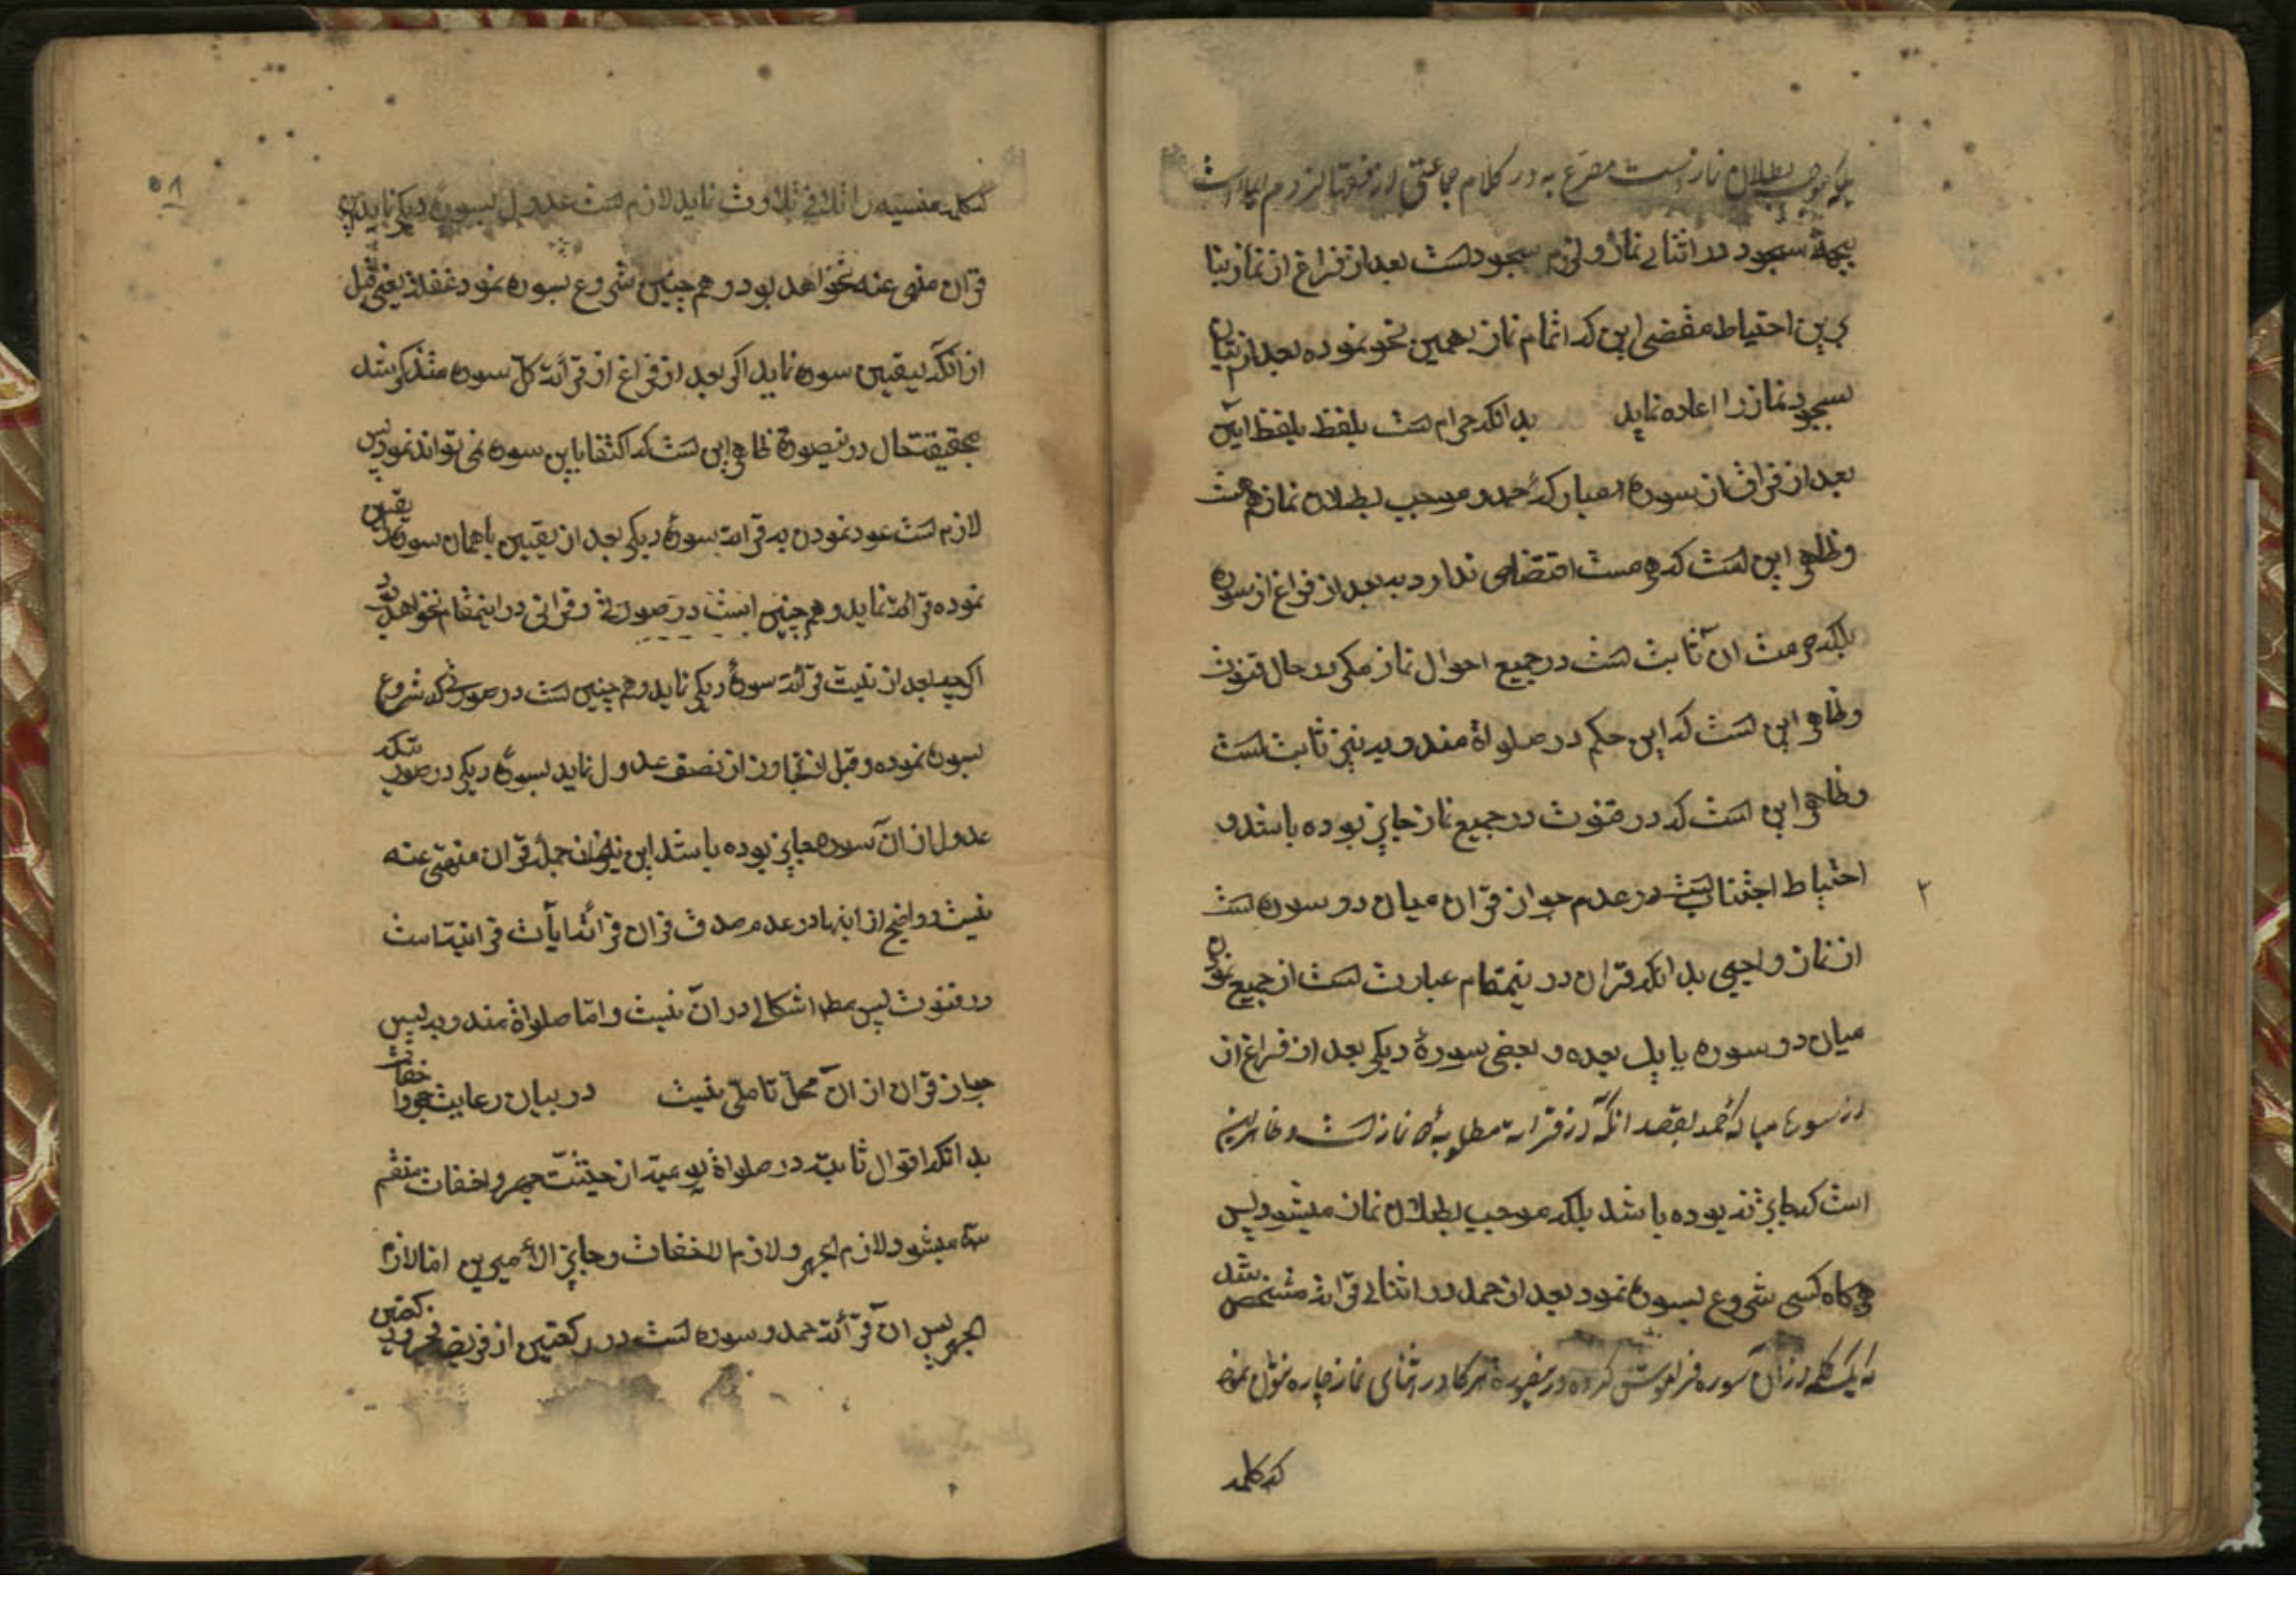 بلکه موجب بطلان نماز است مصرّح به در کلام جماعتی از فقها لزوم ایماء است
بجهة سجود در اثنای نماز و لزوم سجود است بعد از فراغ از نماز بنا
بر این احتیاط مقتضی این که اتمام نماز بهمین نحو نموده بعد از اتیان
سجود نماز را اعاده نماید بدانکه حرام است تلفظ بلفظ آمین
بعد از فراق از سورهٔ مبارکهٔ حمد و موجب بطلان نماز هم هست
و ظاهر این است که حرمت اقتضاصی ندارد به بعد از فراغ از سوره
بلکه حرمت آن ثابت است در جمیع احوال نماز مگر در حال قنوت
و ظاهر این است که این حکم در صلواة مندوبه نیز ثابت است
و ظاهر این است که در قنوت در جمیع نماز جایز بوده باشد و
احتیاط اجتناب است در عدم جواز قران میان دو سوره است
۲
از نماز واجبی بدانکه قران در اینمقام عبارت است از جمیع نمودن
میان دو سوره یا بعض سورهٔ دیگر بعد از فراغ از
از سورهٔ مبارکهٔ حمد بقصد آنکه از قرائت مطلوبهٔ نماز است و ظاهر این
است که جایز نبوده باشد بلکه موجب بطلان نماز میشود پس
هرگاه کسی شروع بسوره نمود بعد از حمد در اثنای قرائة مشخص شد
که یک کلمه از آن سوره فراموش کرده در اینصورة هرگاه در اثنای نماز چاره نتوان نمود
که کلمه
۵۱
که کلمه منسیه را تلاوت نماید لازم است عدول بسورهٔ دیگر نماید این
قران منهی عنه نخواهد بود و همچنین شروع بسوره نمود غفلة یعنی قبل
از آنکه تعیین سوره نماید اگر بعد از فراغ از قرائة کل سوره متذکر شد
بحقیقت حال در اینصورة ظاهر این است که اکتفا باین سوره نمی تواند نمود پس
لازم است عود نمودن به قرائة بسورهٔ دیگر بعد از تعیین یا همان سوره را تعیین
نموده قرائة نماید و همچنین است در صورتی و قرانی در اینمقام نخواهد بود
اگر چه بعد از نیت قرائة سورهٔ دیگر نماید و همچنین است در صورتی که شروع
بسوره نموده و قبل از تجاوز از نصف عدول نماید بسورهٔ دیگر در صورتیکه
عدول از آن سوره جایز بوده باشد این نیز از جملهٔ قران منهی عنه
نیست و واضح از اینها در عدم صدق قران قرائة آیات قرانیه است
در قنوت پس مطلقا اشکالی در آن نیست و اما صلواة مندوبه پس
جواز قران از آن محل تاملی نیست در بیان رعایت جهر و اخفات
بدانکه اقوال ثابته در صلواة یومیه از حیثیّت جهر و اخفات منقسم
سه میشود لازم الجهر و لازم الاخفات و جایز الأمیرین اما لازم
الجهر پس آن قرائة حمد و سوره است در رکعتین از فریضه فجر و در رکعتین